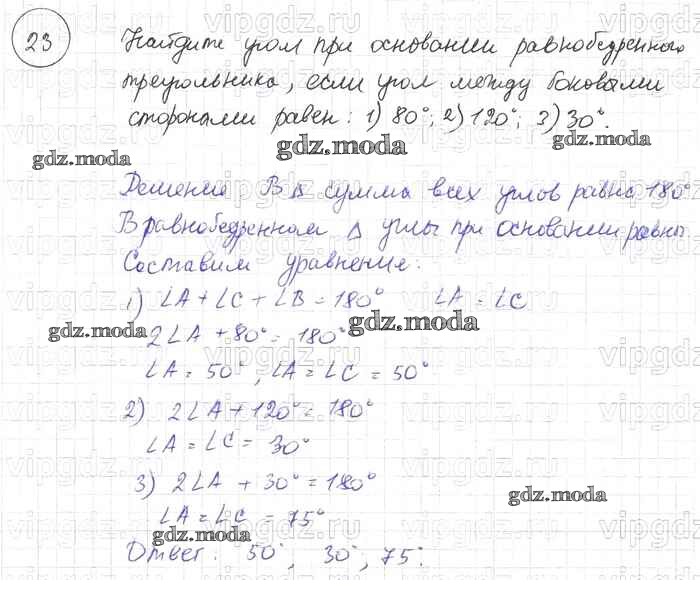 23
Найдите угол при основании равнобедренного
треугольника, если угол между боковыми
сторонами равен: 1) 80°; 2) 120°; 3) 30°.
gdz.moda gdz.moda gdz.moda
Решение В Δ сумма всех углов равна 180°
В равнобедренном Δ углы при основании равны.
Составим уравнение:
1) ∠A + ∠C + ∠B = 180° ∠A = ∠C
gdz.moda gdz.moda
2∠A + 80° = 180°
∠A = 50°, ∠A = ∠C = 50°
2) 2∠A + 120° = 180°
∠A = ∠C = 30°
3) 2∠A + 30° = 180°
gdz.moda
∠A = ∠C = 75°
gdz.moda
Ответ: 50°, 30°, 75°.
vipgdz.ru